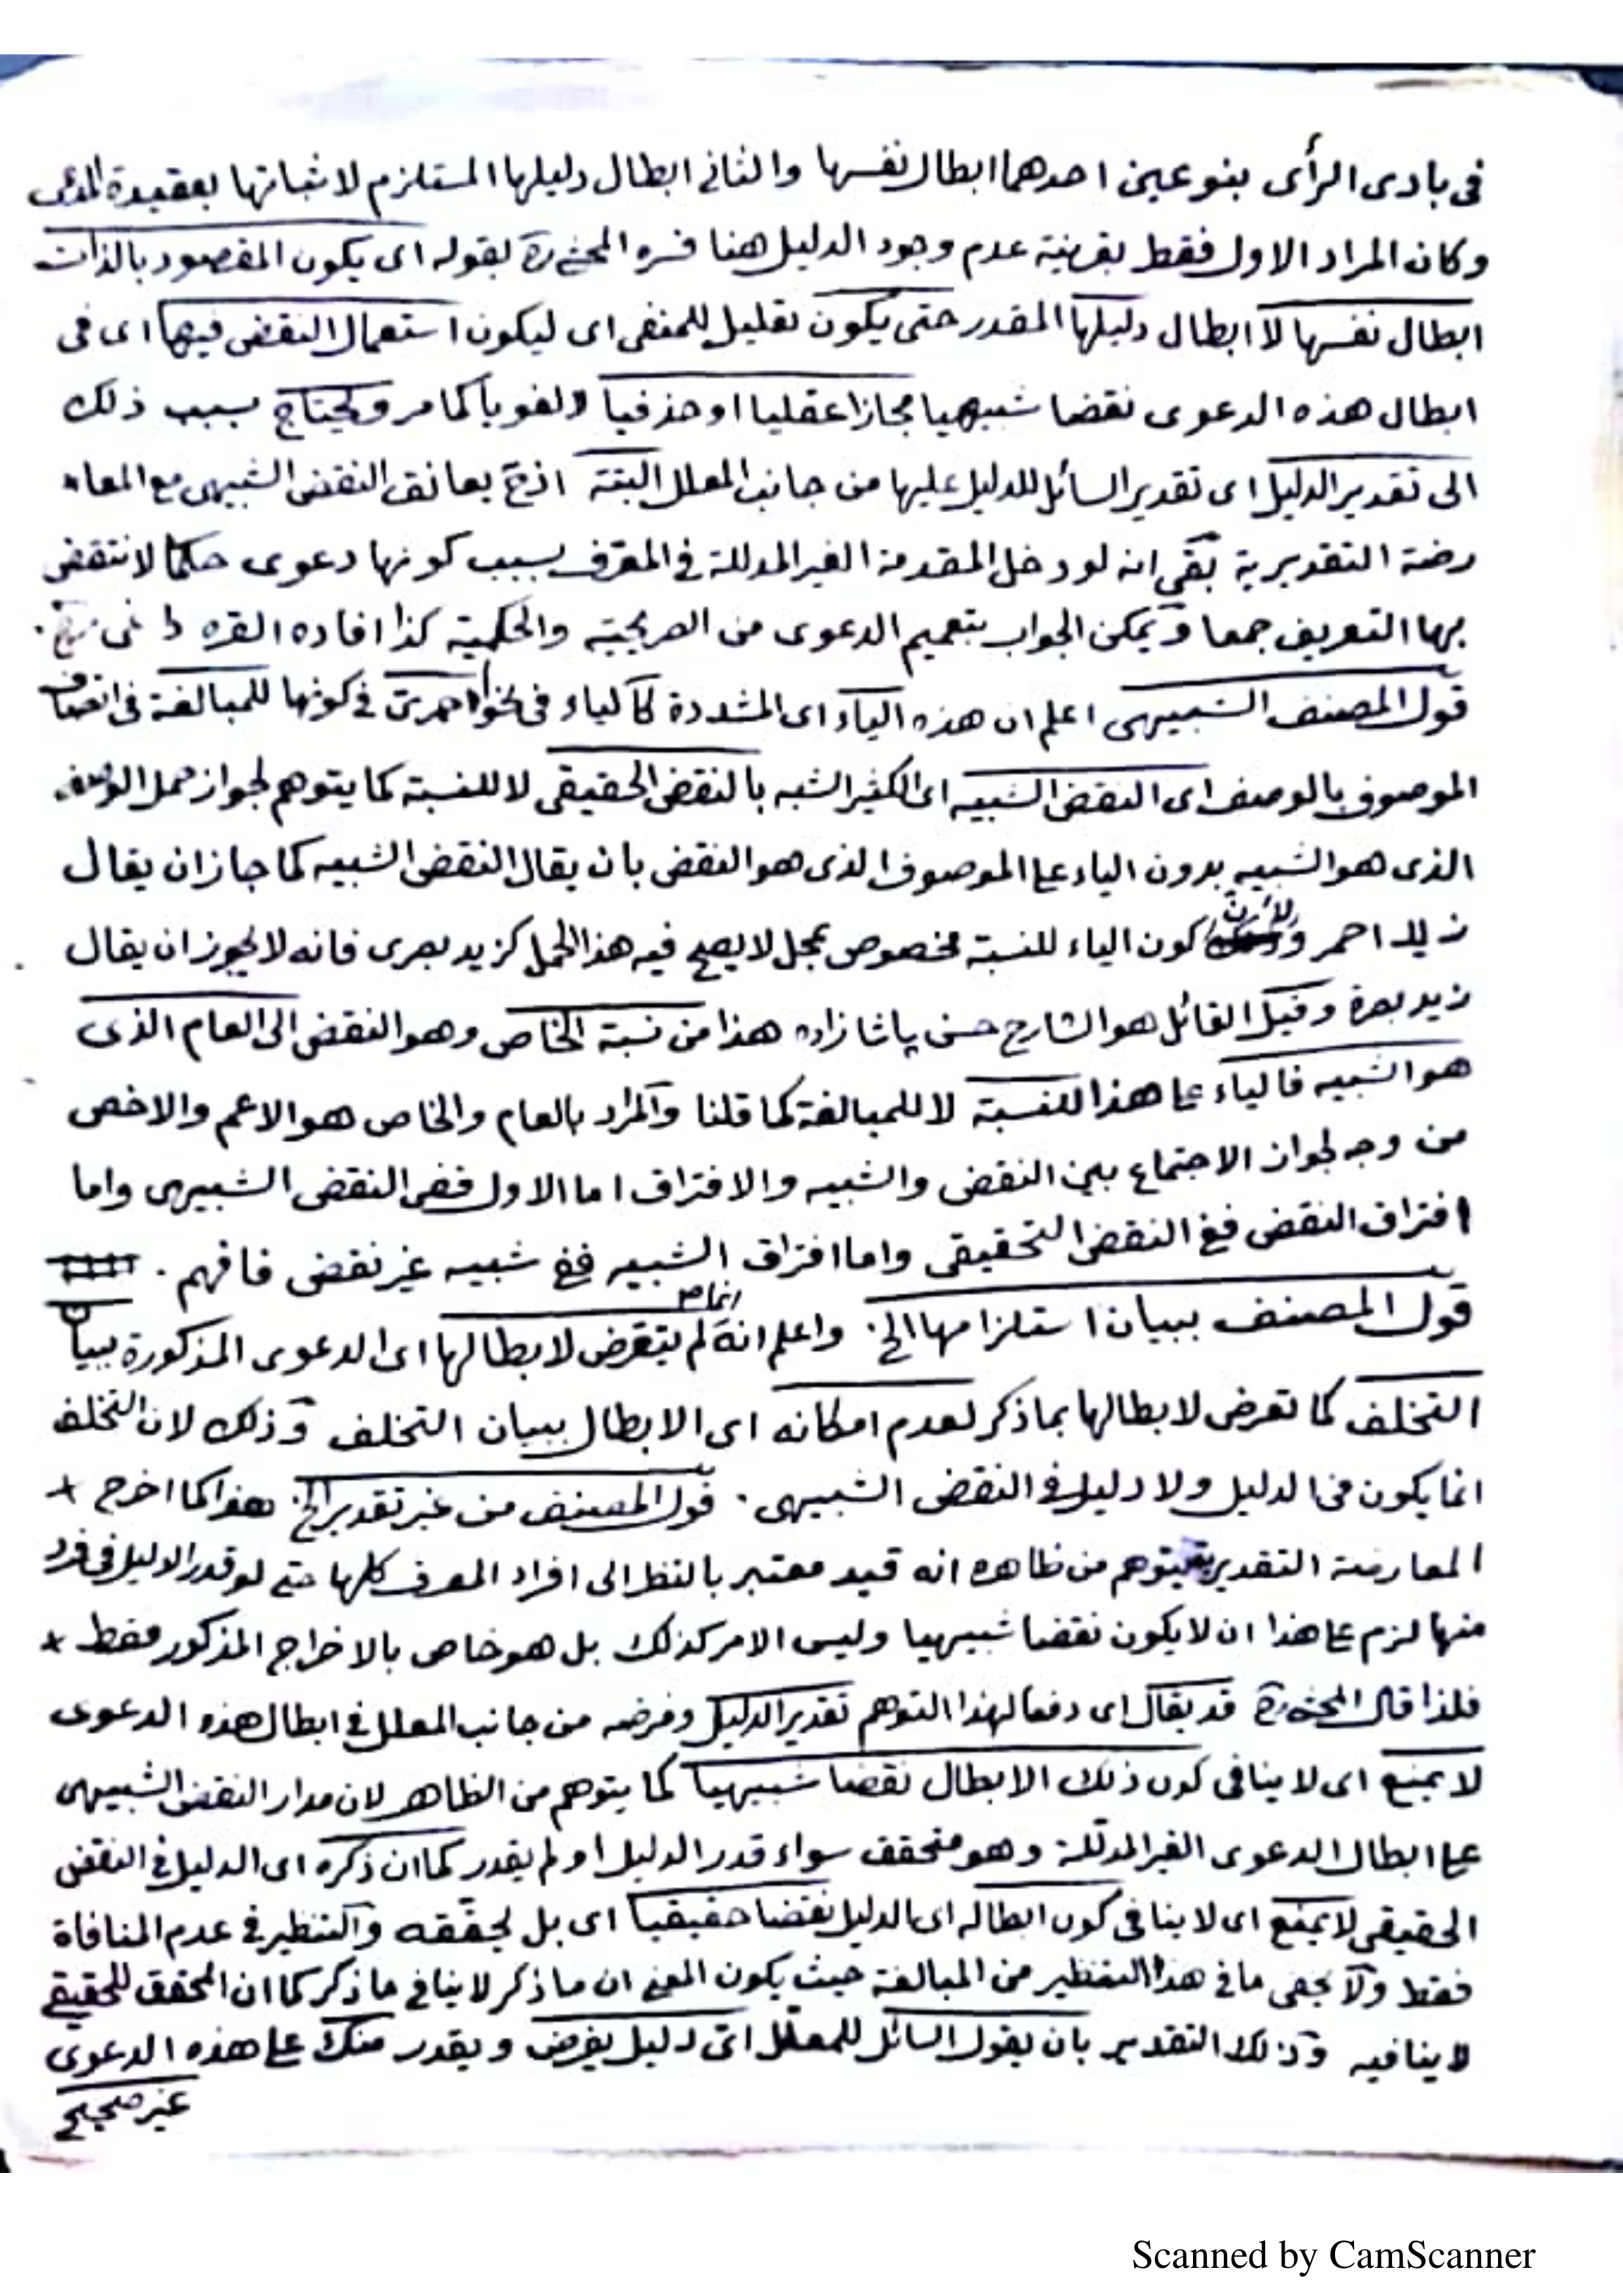 فى بادى الرأى بنوعين احدهما ابطال نفسها والثانى ابطال دليلها المستلزم لاثباتها بعقيدة المدعى
وكان المراد الاول فقط بقرينة عدم وجود الدليل هنا فسره المحشى ره بقوله اى يكون المقصود بالذات
ابطال نفسها لا ابطال دليلها المقدر حتى يكون تعليل للمنفى اى ليكون استعمال النقض فيها اى فى
ابطال هذه الدعوى نقضا شبيهيا مجازا عقليا او حذفيا ولغويا كما مر ويحتاج بسبب ذلك
الى تقدير الدليل اى تقدير السائل للدليل عليها من جانب المعلل البتة اذ ح يعانق النقض الشبيهى مع المعا
رضة التقديرية بقى انه لو دخل المقدمة الغير المدللة فى المعرف بسبب كونها دعوى حكما لانتقض
بها التعريف جمعا ويمكن الجواب بتعميم الدعوى من الصريحية والحكمية كذا افاده القره
قول المصنف الشبيهى اعلم ان هذه الياء اى المشددة كالياء فى نحو احمرى فى كونها للمبالغة فى اتصاف
الموصوف بالوصف اى النقض الشبيه اى الكثير الشبه بالنقض الحقيقى لا للنسبة كما يتوهم لجواز حمل الوصف
الذى هو الشبيه بدون الياء على الموصوف الذى هو النقض بان يقال النقض الشبيه كما جاز ان يقال
زيد احمر ولأن كون الياء للنسبة مخصوص بمحل لا يصح فيه هذا الحمل كزيد بصرى فانه لا يجوز ان يقال
زيد بصرة وقيل القائل هو الشارح حسن پاشا زاده هذا من نسبة الخاص وهو النقض الى العام الذى
هو الشبيه فالياء على هذا للنسبة لا للمبالغة كما قلنا والمراد بالعام والخاص هو الاعم والاخص
من وجه لجواز الاجتماع بين النقض والشبيه والافتراق اما الاول ففى النقض الشبيهى واما
افتراق النقض ففى النقض التحقيقى واما افتراق الشبيه ففى شبيه غير نقض فافهم .
قول المصنف ببيان استلزامها الخ . واعلم انه انما لم يتعرض لابطالها اى الدعوى المذكورة ببيان
التخلف كما تعرض لابطالها بما ذكر لعدم امكانه اى الابطال ببيان التخلف وذلك لان التخلف
انما يكون فى الدليل ولا دليل فى النقض الشبيهى . قول المصنف من غير تقدير الخ هذا كما اخرج
المعارضة التقديرية يتوهم من ظاهره انه قيد معتبر بالنظر الى افراد المعرف كلها حتى لو قدر الدليل فى فرد
منها لزم على هذا ان لا يكون نقضا شبيهيا وليس الامر كذلك بل هو خاص بالاخراج المذكور فقط
فلذا قال المحشى ره قد يقال اى دفعا لهذا التوهم تقدير الدليل وفرضه من جانب المعلل فى ابطال هذه الدعوى
لا يمنع اى لا ينافى كون ذلك الابطال نقضا شبيهيا كما يتوهم من الظاهر لان مدار النقض الشبيهى
على ابطال الدعوى الغير المدللة وهو متحقق سواء قدر الدليل او لم يقدر كما ان ذكره اى الدليل فى النقض
الحقيقى لا يمنع اى لا ينافى كون ابطاله اى الدليل نقضا حقيقيا اى بل يحققه والتنظير فى عدم المنافاة
فقط ولا يخفى ما فى هذا التنظير من المبالغة حيث يكون المعنى ان ما ذكر لا ينافى ما ذكر كما ان المحقق للحقيقى
لا ينافيه وذلك التقدير بان يقول السائل للمعلل اى دليل يفرض ويقدر منك على هذه الدعوى
غير صحيح
Scanned by CamScanner